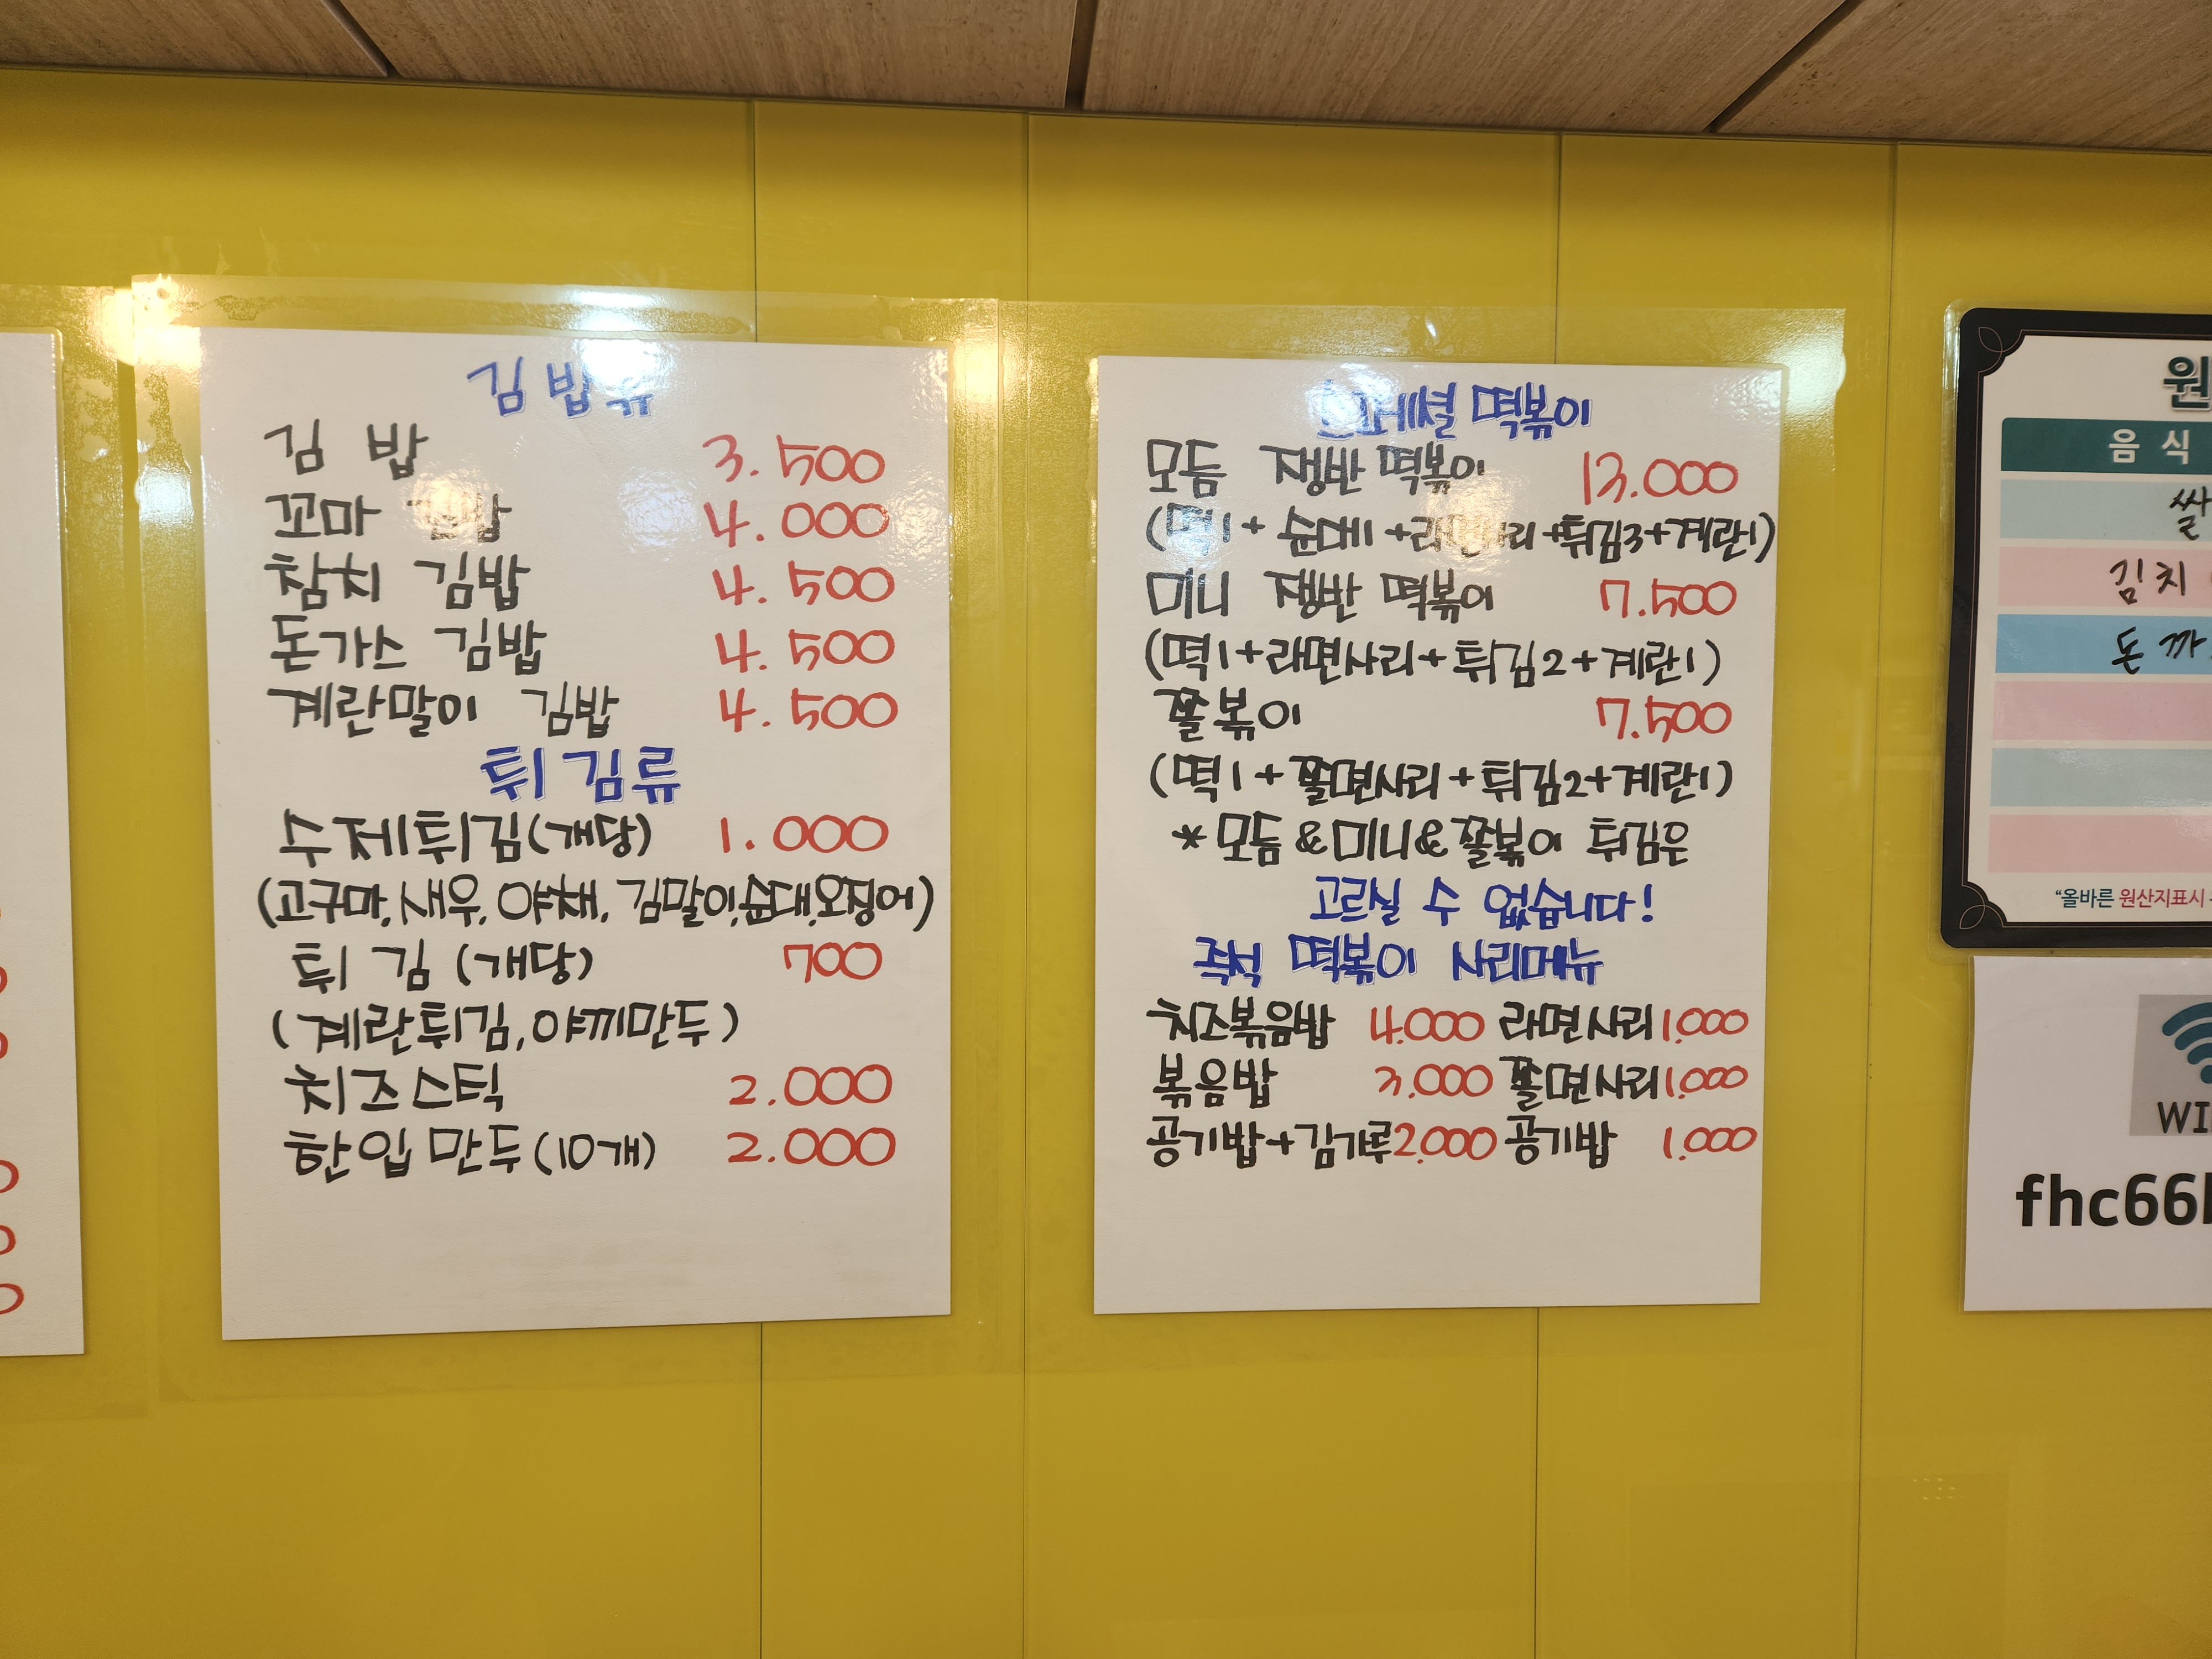 김밥류
김 밥 3.500
꼬마 김밥 4.000
참치 김밥 4.500
돈가스 김밥 4.500
계란말이 김밥 4.500
튀김류
수제튀김(개당) 1.000
(고구마,새우,야채,김말이,순대,오징어)
튀 김 (개당) 700
(계란튀김,야끼만두)
치즈스틱 2.000
한입만두(10개) 2.000
스페셜 떡볶이
모듬 쟁반 떡볶이 13.000
(떡1+순대1+라면사리+튀김3+계란1)
미니 쟁반 떡볶이 7.500
(떡1+라면사리+튀김2+계란1)
쫄볶이 7.500
(떡1+쫄면사리+튀김2+계란1)
*모듬&미니&쫄볶이 튀김은
고르실 수 없습니다!
즉석 떡볶이 사리메뉴
치즈볶음밥 4.000 라면사리 1.000
볶음밥 3.000 쫄면사리 1.000
공기밥+김가루 2.000 공기밥 1.000
원
음 식
쌀
김치
돈 까
"올바른 원산지표시
WI
fhc66